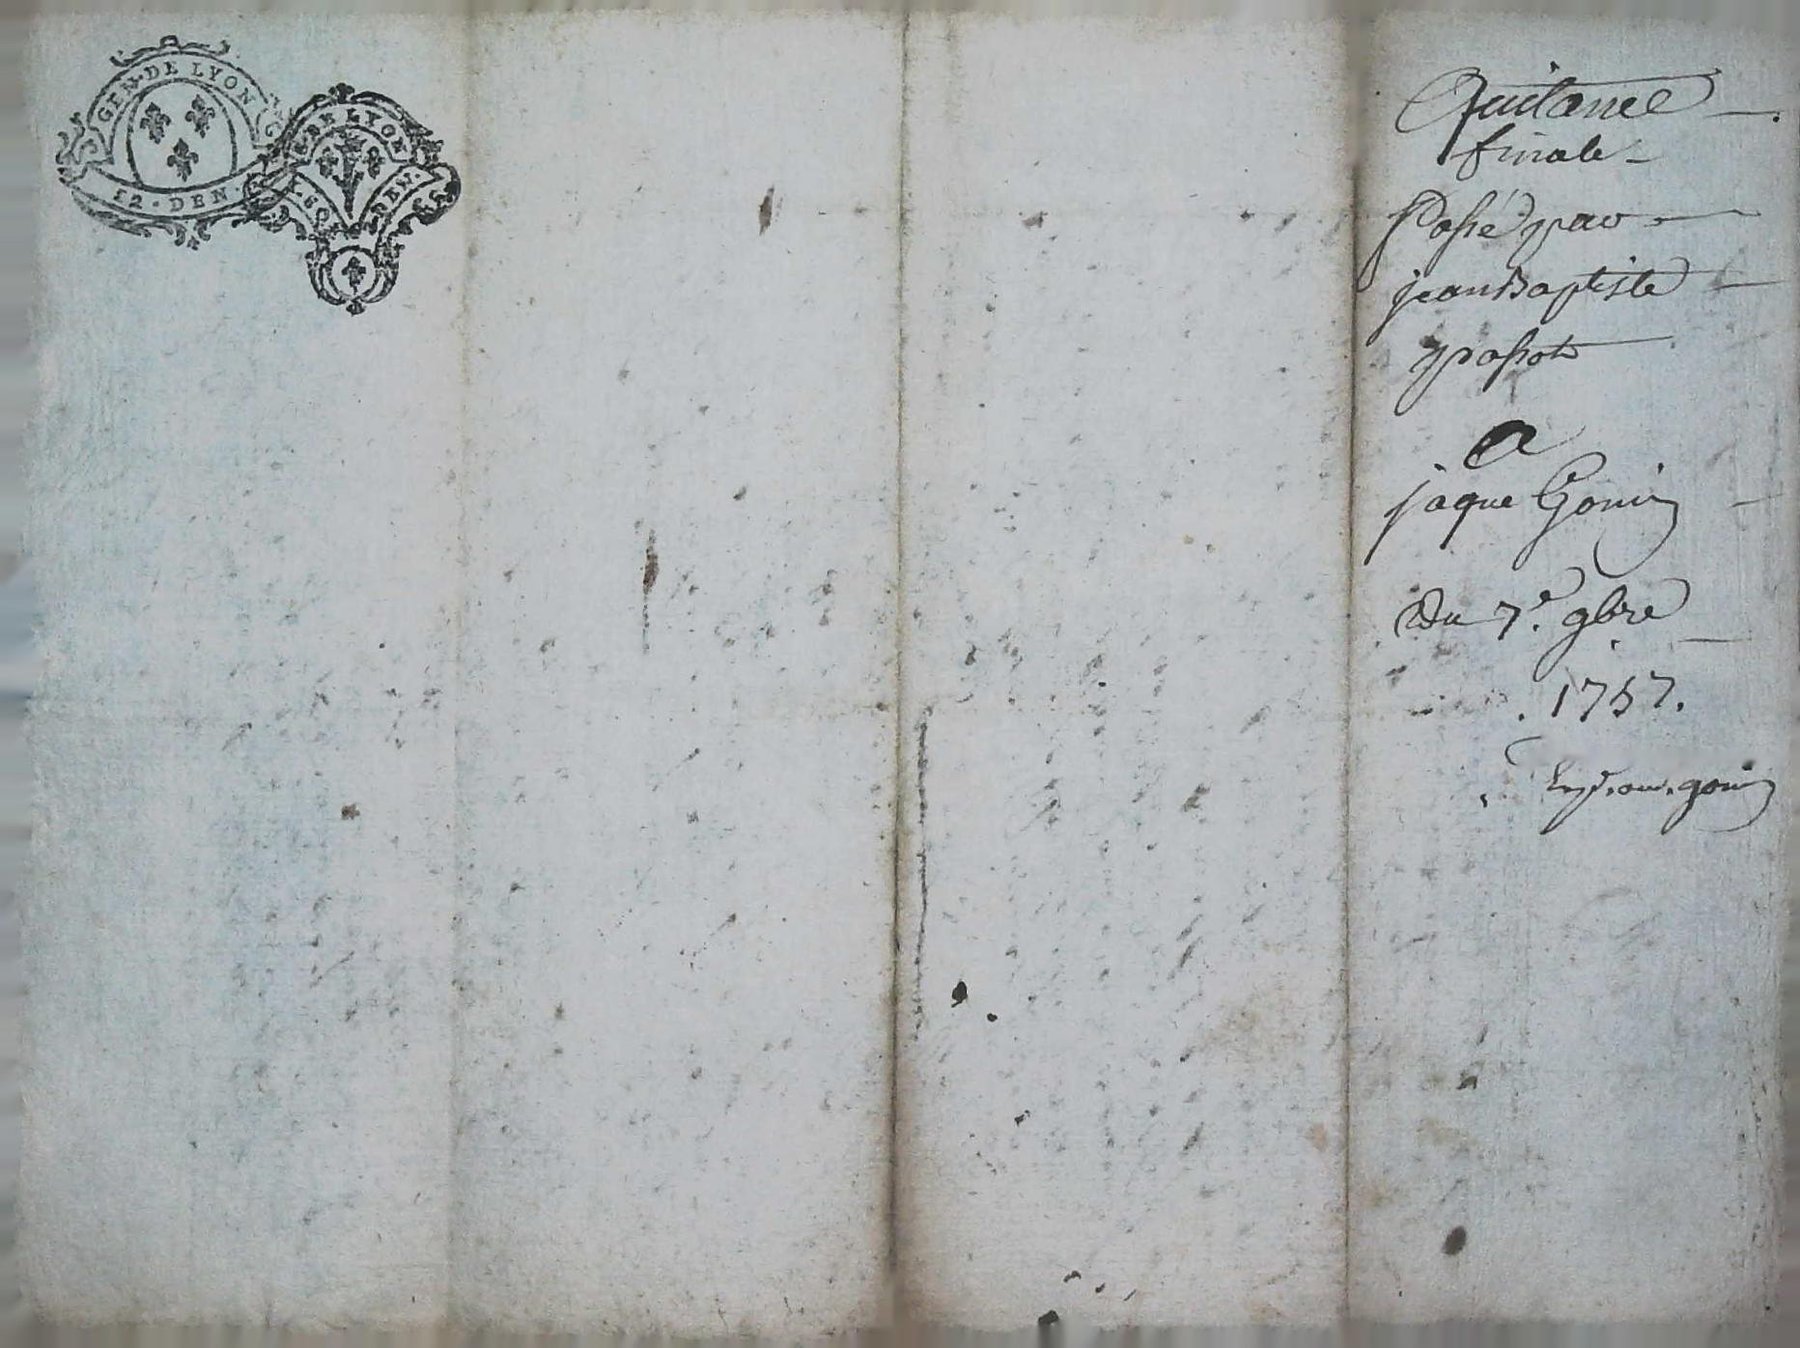 GEN · DE LYON
12 · DEN ·
DE LYON
Quitance
finale
Passé par
jean Baptiste
passot
a
jaque Gonin
Du 7.e 9bre
1757.
gonin